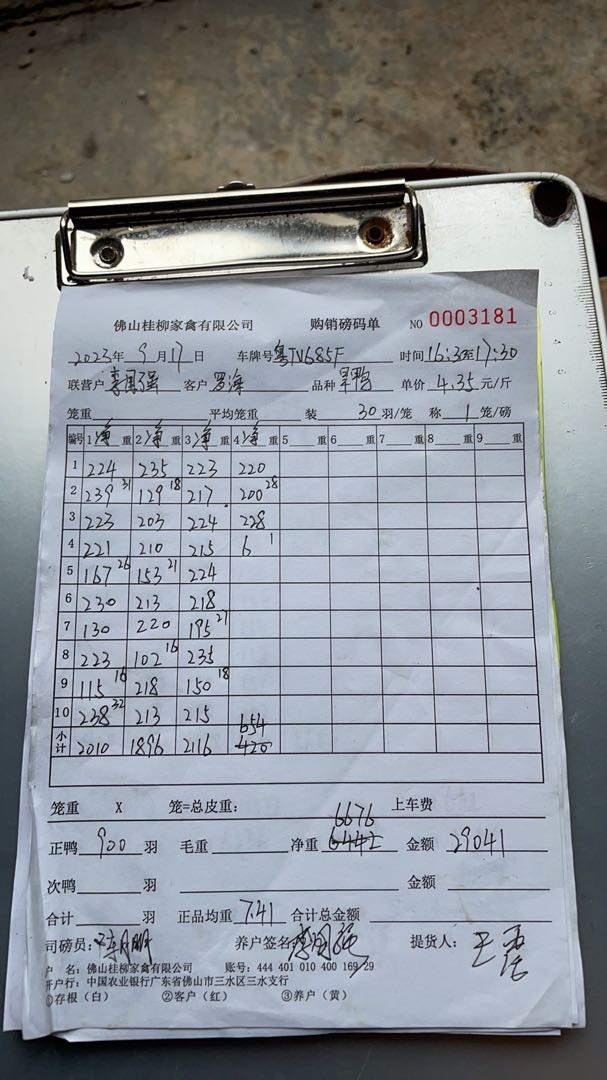 佛山桂柳家禽有限公司 购销磅码单 NO 0003181
2023年 9月 17日 车牌号 粤TV685F 时间 16:30至17:30
联营户 李国强 客户 罗海 品种 旱鸭 单价 4.35 元/斤
笼重 平均笼重 装 30 羽/笼 称 1 笼/磅
编号 1 净 重 2 净 重 3 净 重 4 净 重 5 重 6 重 7 重 8 重 9 重
1 224 235 223 220
2 239 31 129 18 217 200 28
3 223 203 224 228
4 221 210 215 6 1
5 167 26 153 21 224
6 230 213 218
7 130 220 195 27
8 223 102 16 235
9 115 16 218 150 18
10 238 32 213 215
654
小计 2010 1896 2116 420
笼重 X 笼=总皮重: 6676 上车费
正鸭 900 羽 毛重 净重 6442 金额 29041
次鸭 羽 金额
合计 羽 正品均重 7.41 合计总金额
司磅员: 养户签名 李国强 提货人:
户 名: 佛山桂柳家禽有限公司 账号: 444 401 010 400 169 29
开户行: 中国农业银行广东省佛山市三水区三水支行
①存根（白） ②客户（红） ③养户（黄）